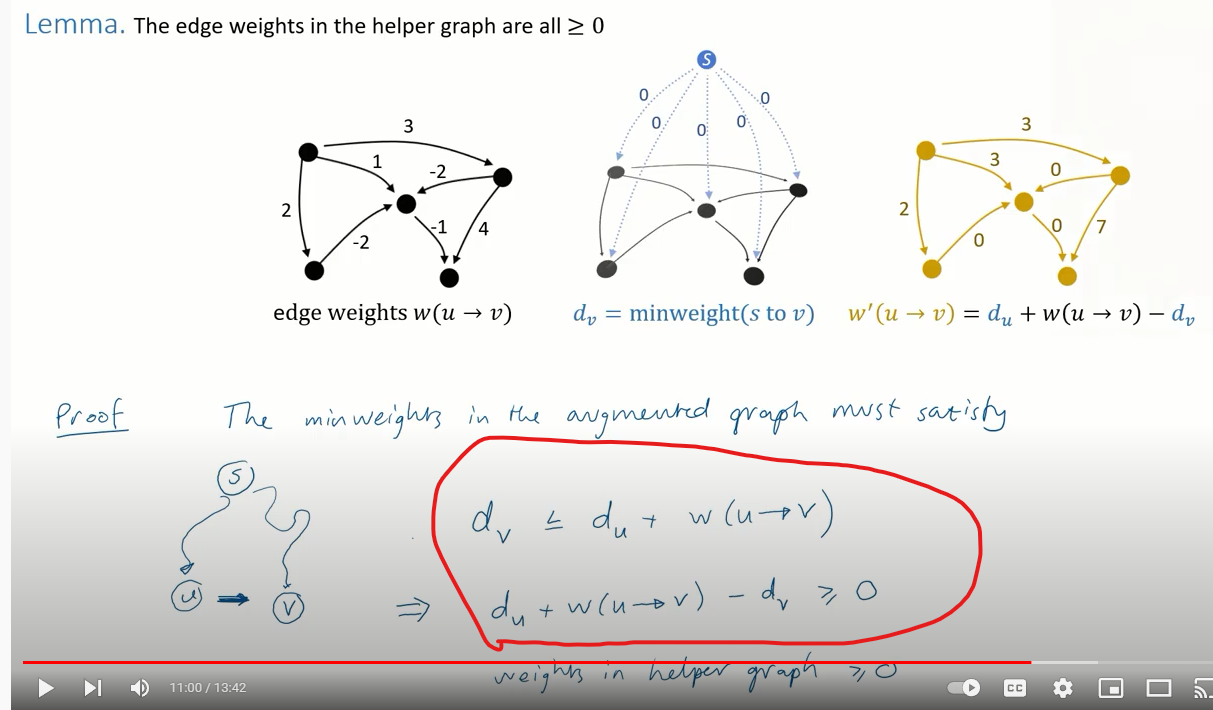 Lemma. The edge weights in the helper graph are all ≥ 0
S
0
0
0
0
0
3
1
-2
2
-2
-1
4
3
3
0
2
0
0
7
edge weights w(u → v)
d_v = minweight(s to v)
w'(u → v) = d_u + w(u → v) − d_v
Proof The minweights in the augmented graph must satisfy
S
d_v ≤ d_u + w(u→v)
u → v
⇒ d_u + w(u→v) − d_v ≥ 0
weights in helper graph ≥ 0
11:00 / 13:42
CC